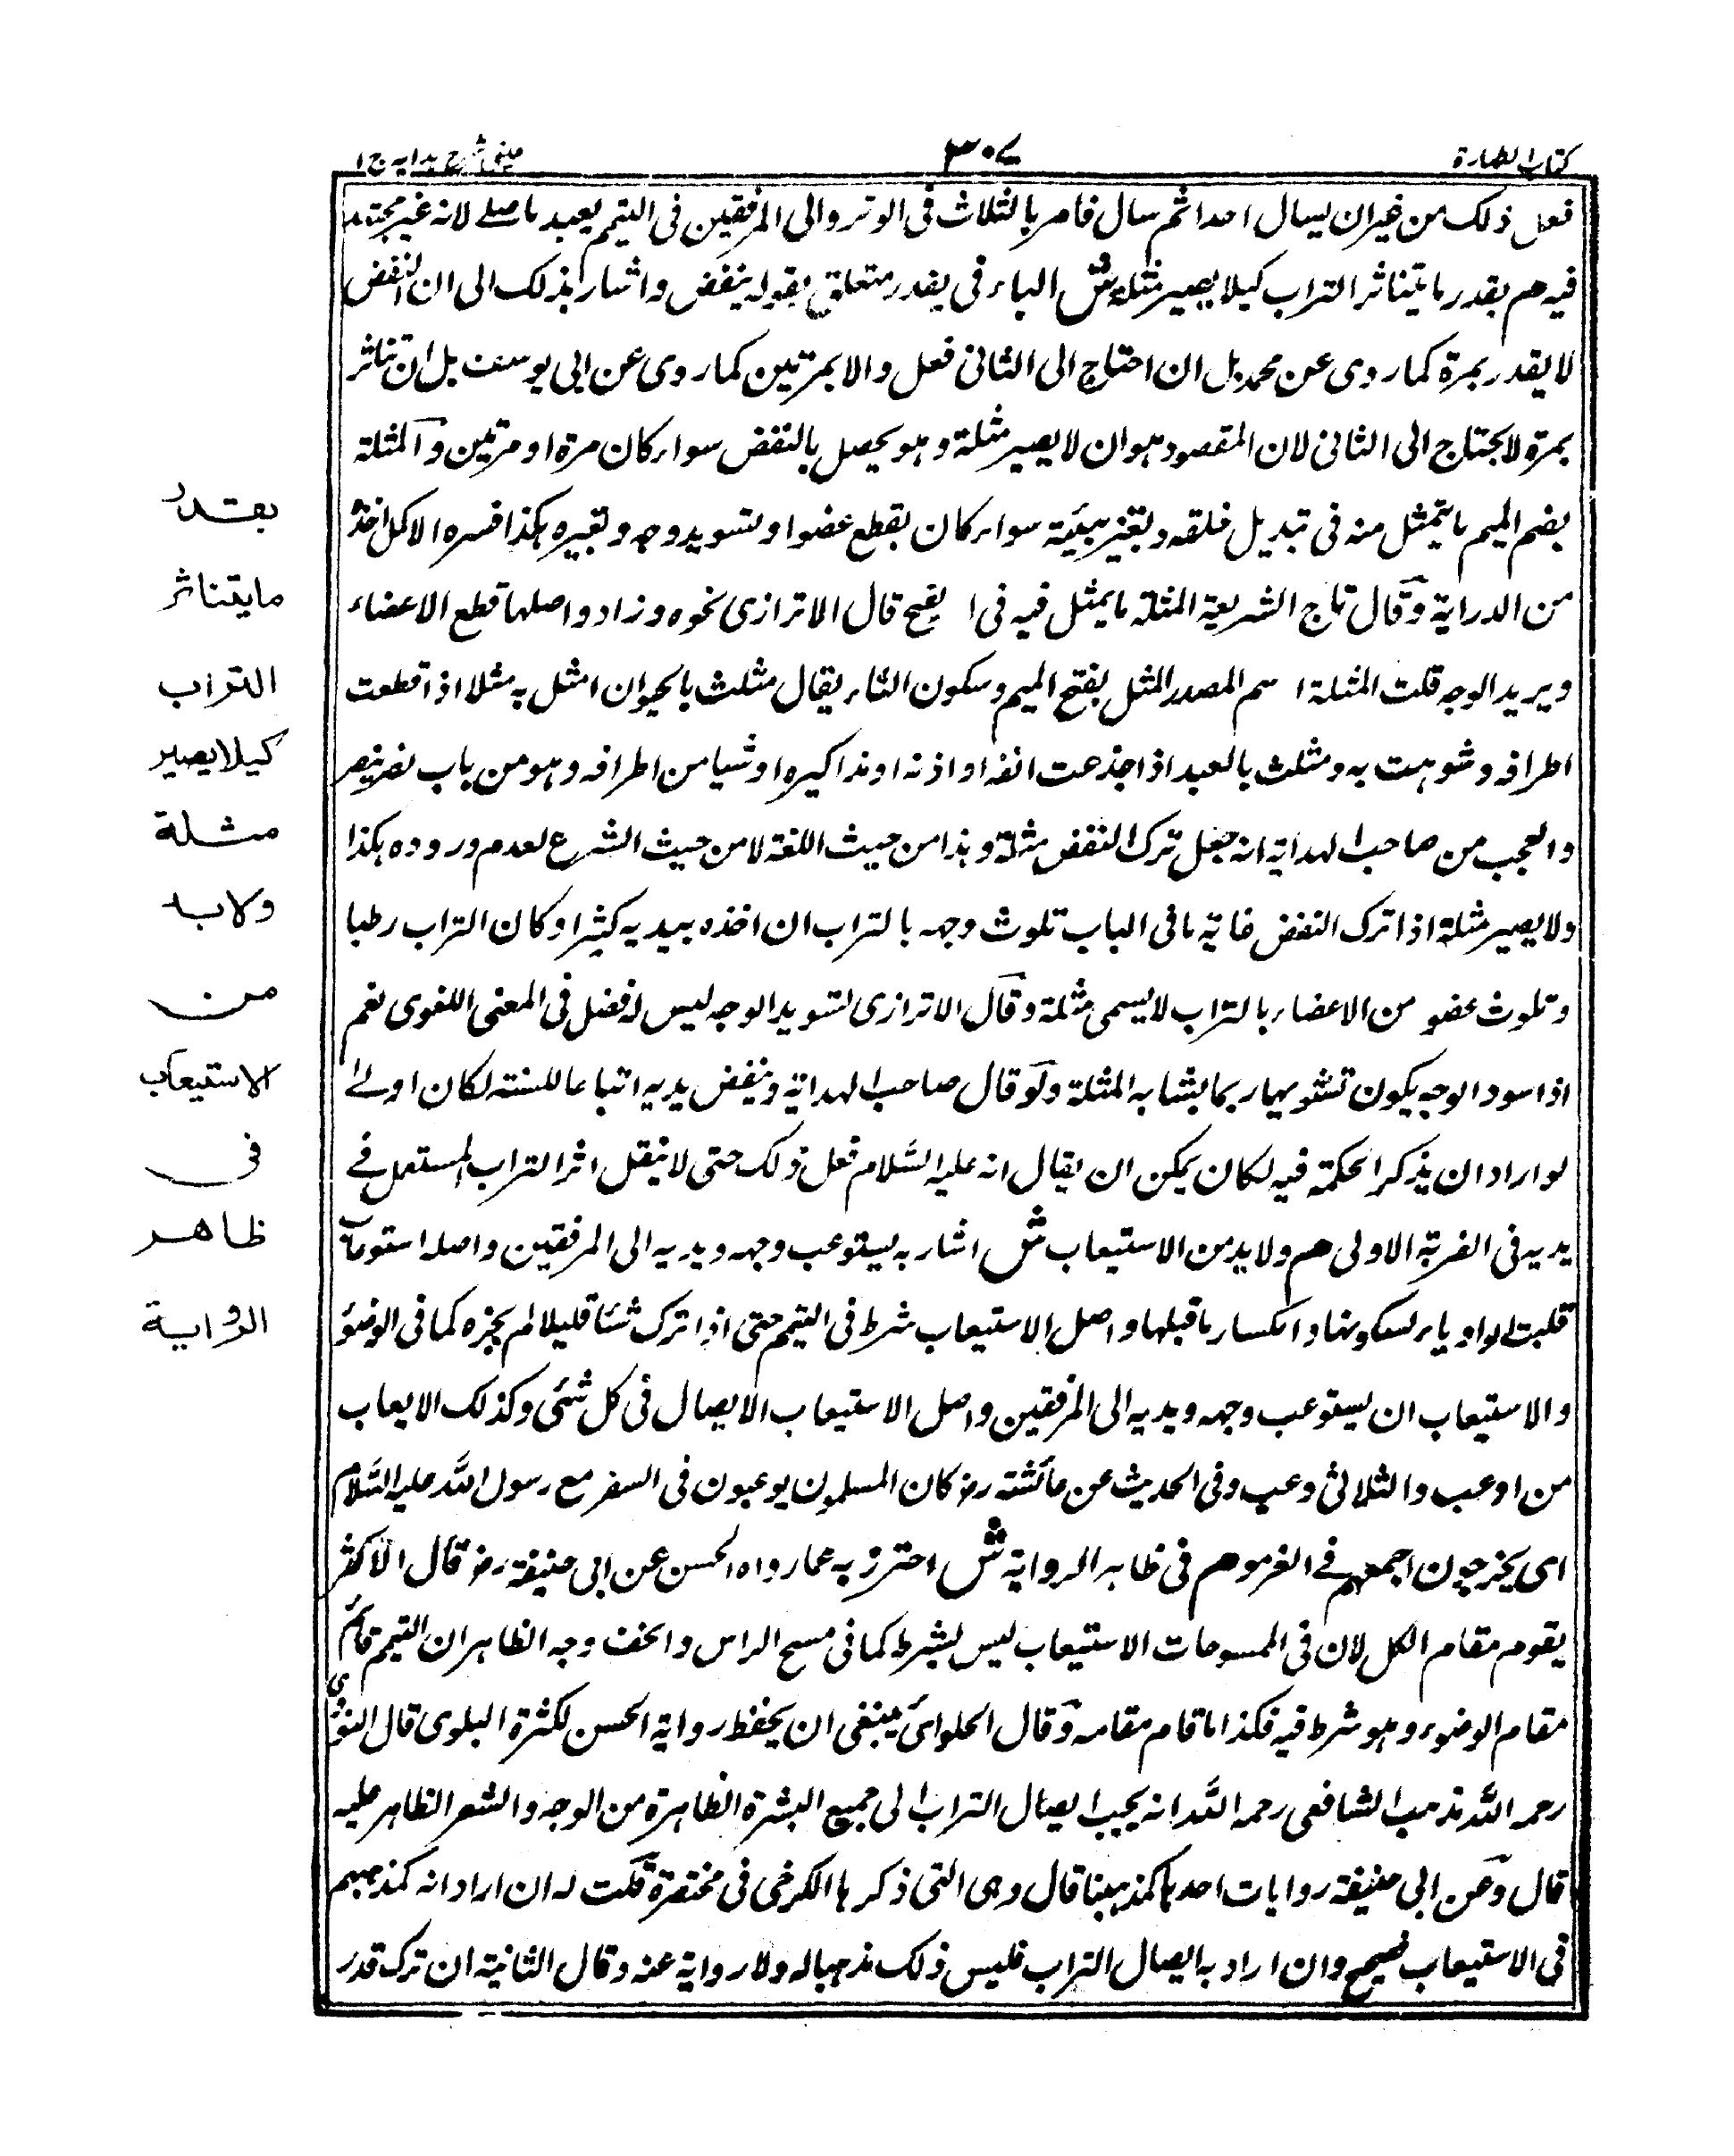 كتاب الطهارة
٣٠٧
عينى شرح هدايه ج ا
فعل ذلك من غيران يسال احدا ثم سال فامر بالثلاث فى الوتر والى المرفقين فى التيمم يعيد ما صلے لانه غير مجتهد
فيه م بقدر ما يتناثر التراب كيلا يصير مثلة ش الباء فى بقدر متعلق بقوله ينفض واشار بذلك الى ان النفض
لا يقدر بمرة كما روى عن محمد بل ان احتاج الى الثانى فعل والا بمرتين كما روى عن ابى يوسف بل ان تناثر
بمرة لا يحتاج الى الثانى لان المقصود هو ان لا يصير مثلة وهو يحصل بالنفض سواء كان مرة او مرتين والمثلة
بضم الميم ما يتمثل منه فى تبديل خلقه وتغير هيئة سواء كان بقطع عضو او تسويد وجه وتغيره هكذا فسره الاكمل اخذه
من الدراية وقال تاج الشريعة المثلة ما يمثل فيه فى ا لقبح قال الاترازى نحوه وزاد واصلها قطع الاعضاء
ويريد الوجه قلت المثلة ا سم المصدر المثل بفتح الميم وسكون الثاء يقال مثلث بالحيوان امثل به مثلا اذا قطعت
اطرافه وشوهت به ومثلث بالعبد اذا جذعت انفه او اذنه او مذاكيره او شيا من اطرافه وهو من باب نصر ينصر
والعجب من صاحب الهداية انه جعل ترك النفض مثلة وهذا من حيث اللغة لا من حيث الشرع لعدم وروده هكذا
ولا يصير مثلة اذا ترك النفض غاية ما فى الباب تلوث وجهه بالتراب ان اخذه بيديه كثيرا وكان التراب رطبا
وتلوث عضو من الاعضاء بالتراب لا يسمى مثلة وقال الاترازى تسويد الوجه ليس له فضل فى المعنى اللغوى نعم
اذا سود الوجه يكون تشويها ربما يشابه المثلة ولو قال صاحب الهداية وينفض يديه اتباعا للسنة لكان اولے
لو اراد ان يذكر الحكمة فيه لكان يمكن ان يقال انه عليه السلام فعل ذلك حتى لا ينقل اثر التراب المستعمل فے
يديه فى الضربة الاولى م ولا بد من الاستيعاب ش اشار به يستوعب وجهه ويديه الى المرفقين واصله استوعاب
قلبت الواو ياء لسكونها وانكسار ما قبلها واصل الاستيعاب شرط فى التيمم حتى اذا ترك شئا قليلا لم يجزه كما فى الوضوء
والاستيعاب ان يستوعب وجهه ويديه الى المرفقين واصل الاستيعاب الايصال فى كل شئى وكذلك الايعاب
من اوعب والثلاثى وعب وفى الحديث عن عائشة رض كان المسلمون يوعبون فى السفر مع رسول الله عليه السلام
اى يخرجون اجمعهم فے الغزو م فى ظاهر الرواية ش احترز به عما رواه الحسن عن ابى حنيفة رض قال الاكثر
يقوم مقام الكل لان فى الممسوحات الاستيعاب ليس بشرط كما فى مسح الراس والخف وجه الظاهر ان التيمم قائم
مقام الوضوء وهو شرط فيه فكذا ما قام مقامه وقال الحلوائى ينبغى ان يحفظ رواية الحسن لكثرة البلوى قال النووى
رحمه الله مذهب الشافعى رحمه الله انه يجب ايصال التراب الى جميع البشرة الظاهرة من الوجه والشعر الظاهر عليه
قال وعن ابى حنيفة روايات احدها كمذهبنا قال وهى التى ذكرها الكرخى فى مختصرة قلت له ان اراد انه كمذهبهم
فى الاستيعاب فصحيح وان اراد به ايصال التراب فليس ذلك مذهبا له ولا رواية عنه وقال الثانية ان ترك قدر
بقدر
مايتناثر
التراب
كيلايصير
مثلة
ولابد
من
الاستيعاب
فى
ظاهر
الرواية